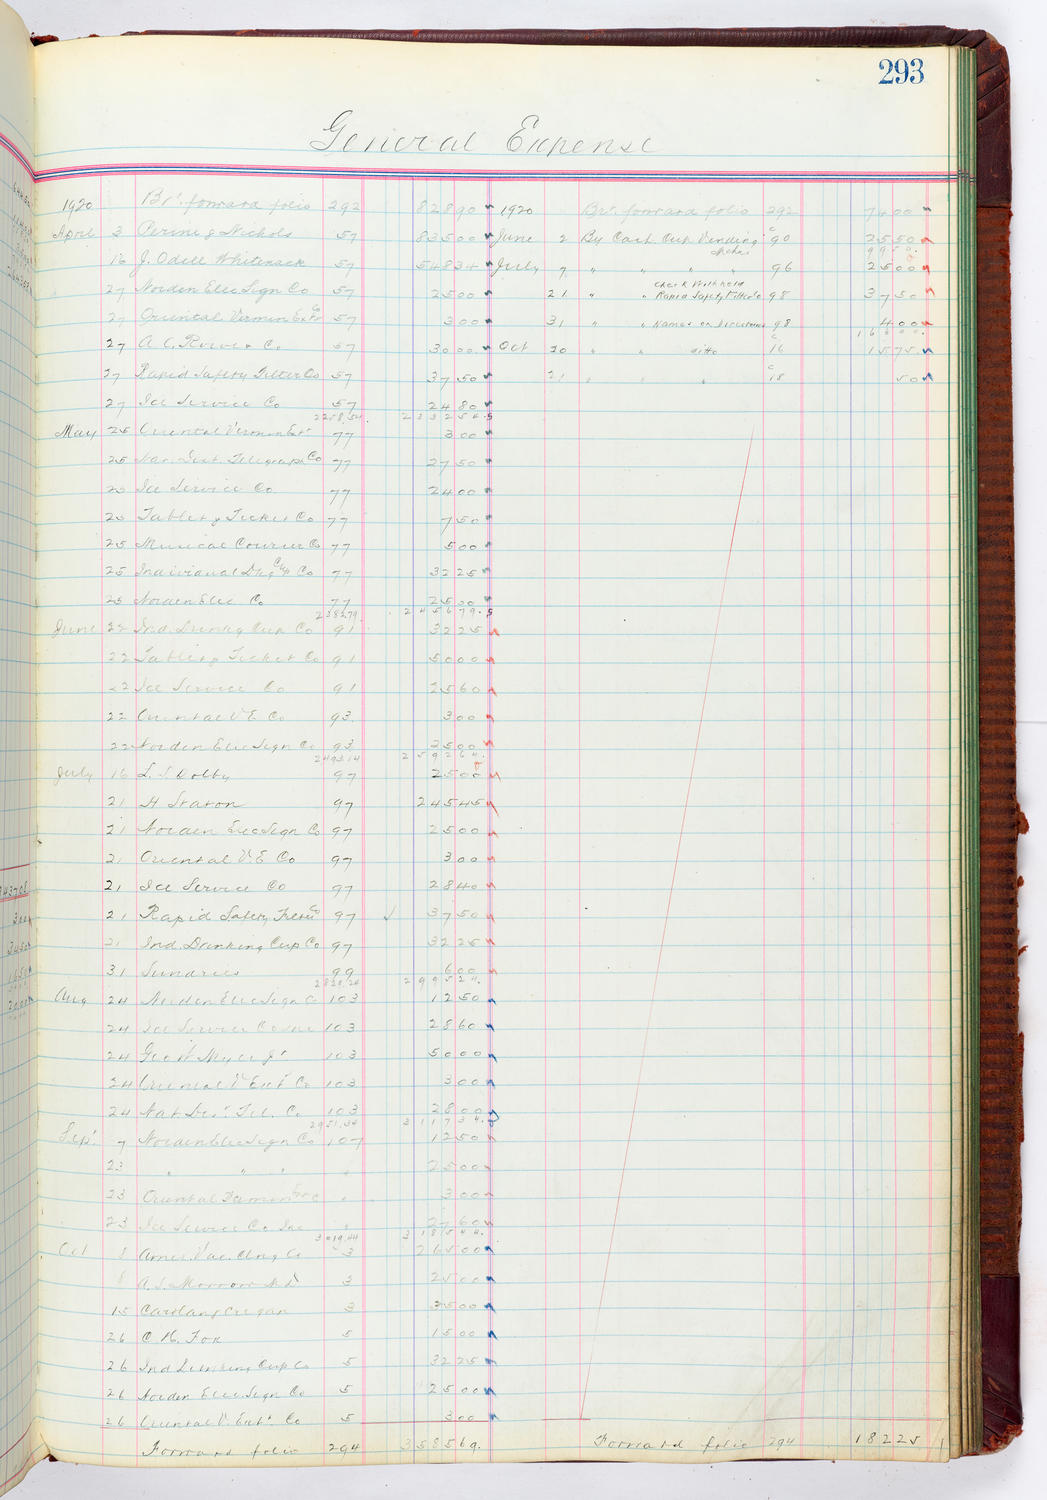 293
General Expense
1920 Brt. forward folio 292 82890 1920 Brt. forward folio 292 7400
April 3 Perine & Nichols 57 83500 June 2 By Cash Cup Vending c 90 2550
9950.
16 J. Odell Whitenack 57 54834 July 7 " " " " 96 2500
27 Norden Elec Sign Co 57 2500 21 " " Check Withheld Rapid Safety Filter Co 98 3750
27 Oriental Vermin Ext Co 57 300 31 " " Names on Directories 98 400
27 A. C. Rowe & Co 57 3000 Oct 20 " " ditto c 16 1575
27 Rapid Safety Filter Co 57 3750 21 " " " c 18 50
27 Ice Service Co 57 2480
2258.54. 233254.
May 25 Oriental Vermin Ext 77 300
25 Nat. Dist. Telegraph Co 77 2750
25 Ice Service Co 77 2400
25 Tablet & Ticket Co 77 750
25 Musical Courier Co 77 500
25 Individual Dkg Cup Co 77 3225
25 Norden Elec Co 77 2500
2382.79. 245679.
June 22 Ind. Drinkg Cup Co 91 3225
22 Tablet & Ticket Co 91 5000
22 Ice Service Co 91 2560
22 Oriental V E Co 93 300
22 Norden Elec Sign Co 93 2500
2493.14 259264.
July 16 L. S. Dolby 97 2500
21 H Staton 97 24545
21 Norden Elec Sign Co 97 2500
21 Oriental V E Co 97 300
21 Ice Service Co 97 2840
21 Rapid Safety Filter Co 97 3750
21 Ind. Drinking Cup Co 97 3225
31 Sundries 99 600
2829.24 299524.
Aug 24 Norden Elec Sign Co 103 1250
24 Ice Service Co Inc 103 2860
24 Geo W Myer Jr 103 5000
24 Oriental V Ext Co 103 300
24 Nat Dist. Tel. Co 103 2800
2951.34 311734.
Sept 7 Norden Elec Sign Co 107 1250
23 " " " " 2500
23 Oriental Vermin " 300
23 Ice Service Co Inc " 2760
3019.44 318544.
Oct 8 Amer. Vac. Clng Co 3 26500
8 A. S. Morrow 3 2500
15 3 3500
26 C. H. Fox 5 1500
26 Ind Drinking Cup Co 5 3225
26 Norden Elec. Sign Co 5 2500
26 Oriental V. Ext. Co 5 300
Forward folio 294 358569. Forward folio 294 18225